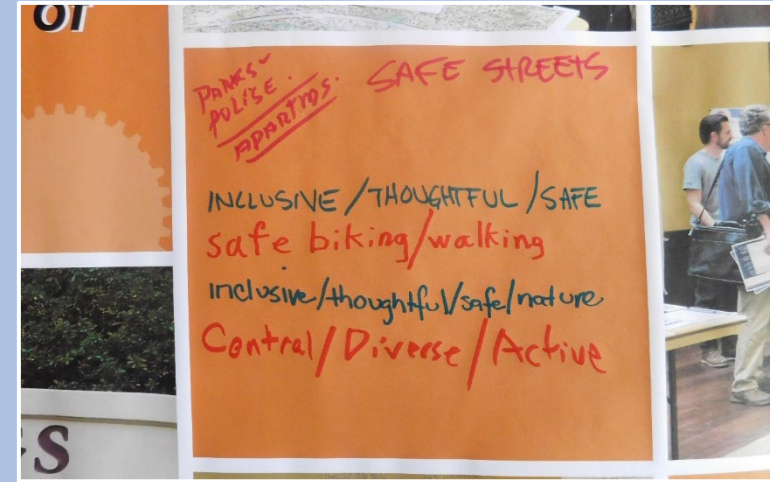 of
PARKS-
POLISE.
APARTTOS.
SAFE STREETS
INCLUSIVE/THOUGHTFUL/SAFE
safe biking/walking
inclusive/thoughtful/safe/nature
Central/Diverse/Active
S